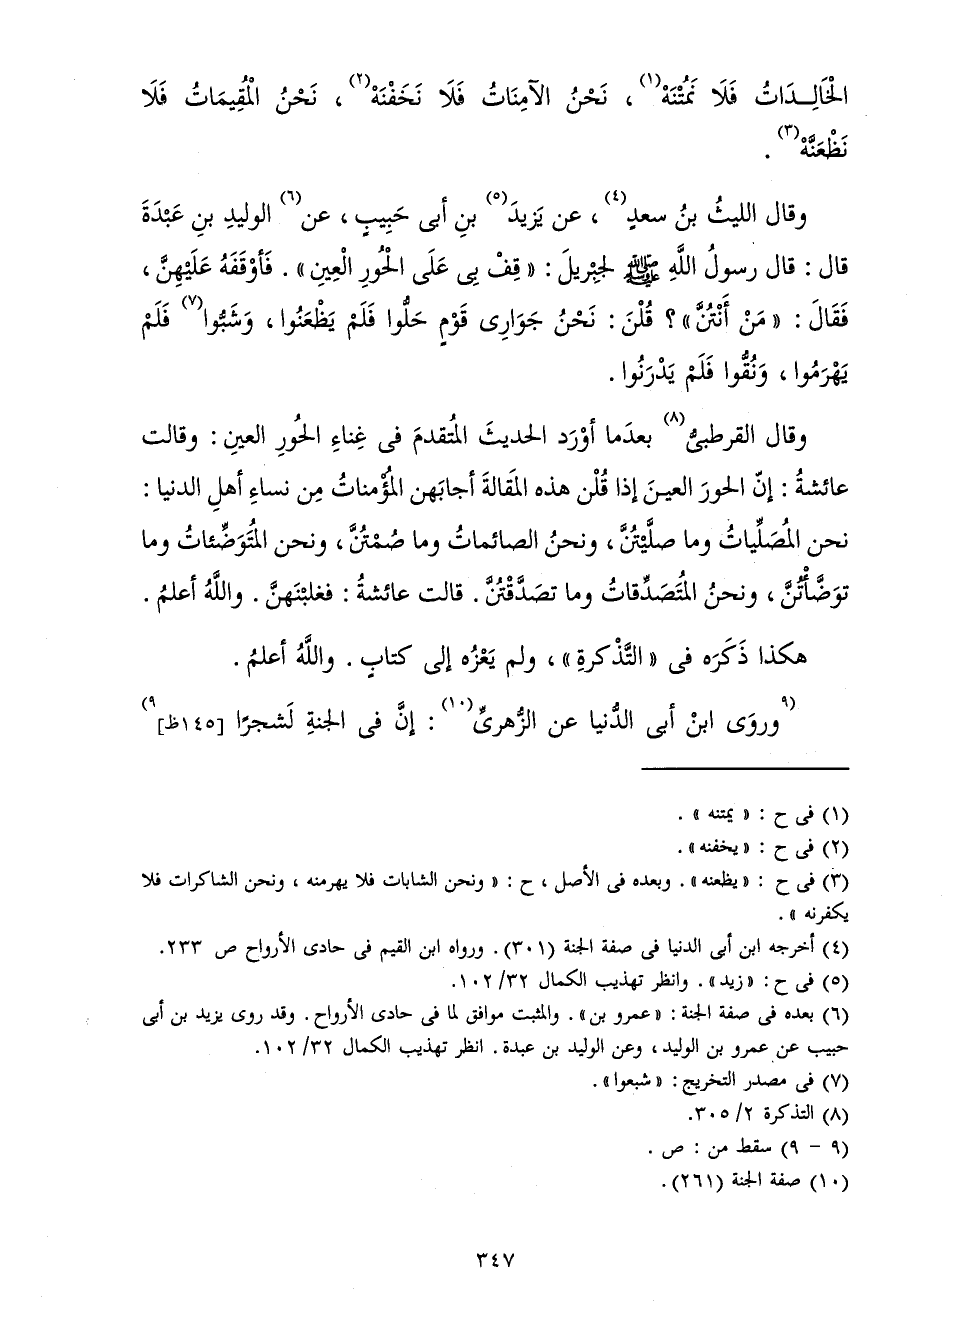 الْخَالِـدَاتُ فَلَا نَمُتْنَهْ(١) ، نَحْنُ الآمِنَاتُ فَلَا نَخَفْنَهْ(٢) ، نَحْنُ الْمُقِيمَاتُ فَلَا
نَظْعَنَّهْ(٣) .
وقال الليثُ بنُ سعدٍ(٤) ، عن يَزِيدَ(٥) بنِ أبى حَبِيبٍ ، عن(٦) الوليدِ بنِ عَبْدَةَ
قال : قال رسولُ اللَّهِ ﷺ لجِبْرِيلَ : « قِفْ بِى عَلَى الْحُورِ الْعِينِ » . فَأَوْقَفَهُ عَلَيْهِنَّ ،
فَقَالَ : « مَنْ أَنْتُنَّ » ؟ قُلْنَ : نَحْنُ جَوَارِى قَوْمٍ حَلُّوا فَلَمْ يَظْعَنُوا ، وَشَبُّوا(٧) فَلَمْ
يَهْرَمُوا ، وَنُقُّوا فَلَمْ يَدْرَنُوا .
وقال القرطبىُّ(٨) بعدَما أوْرَد الحديثَ المُتقدمَ فى غِناءِ الحُورِ العينِ : وقالت
عائشةُ : إنّ الحورَ العينَ إذا قُلْن هذه المَقالةَ أجابَهن المُؤْمناتُ مِن نساءِ أهلِ الدنيا :
نحن المُصَلِّياتُ وما صلَّيْتُنَّ ، ونحنُ الصائماتُ وما صُمْتُنَّ ، ونحن المُتَوَضِّئاتُ وما
توَضَّأْتُنَّ ، ونحنُ المُتَصَدِّقاتُ وما تصَدَّقْتُنَّ . قالت عائشةُ : فغلبْنَهنَّ . واللَّهُ أعلمُ .
هكذا ذَكَرَه فى « التَّذْكرةِ » ، ولم يَعْزُه إلى كتابٍ . واللَّهُ أعلمُ .
(٩وروَى ابنُ أبى الدُّنيا عن الزُّهرىِّ(١٠) : إنَّ فى الجنةِ لَشجرًا [١٤٥ظ]٩)
(١) فى ح : « يمتنه » .
(٢) فى ح : « يخفنه » .
(٣) فى ح : « يظعنه » . وبعده فى الأصل ، ح : « ونحن الشابات فلا يهرمنه ، ونحن الشاكرات فلا
يكفرنه » .
(٤) أخرجه ابن أبى الدنيا فى صفة الجنة (٣٠١) . ورواه ابن القيم فى حادى الأرواح ص ٢٣٣.
(٥) فى ح : « زيد » . وانظر تهذيب الكمال ٣٢/ ١٠٢.
(٦) بعده فى صفة الجنة : « عمرو بن » . والمثبت موافق لما فى حادى الأرواح . وقد روى يزيد بن أبى
حبيب عن عمرو بن الوليد ، وعن الوليد بن عبدة . انظر تهذيب الكمال ٣٢/ ١٠٢.
(٧) فى مصدر التخريج : « شبعوا » .
(٨) التذكرة ٢/ ٣٠٥.
(٩ - ٩) سقط من : ص .
(١٠) صفة الجنة (٢٦١) .
٣٤٧